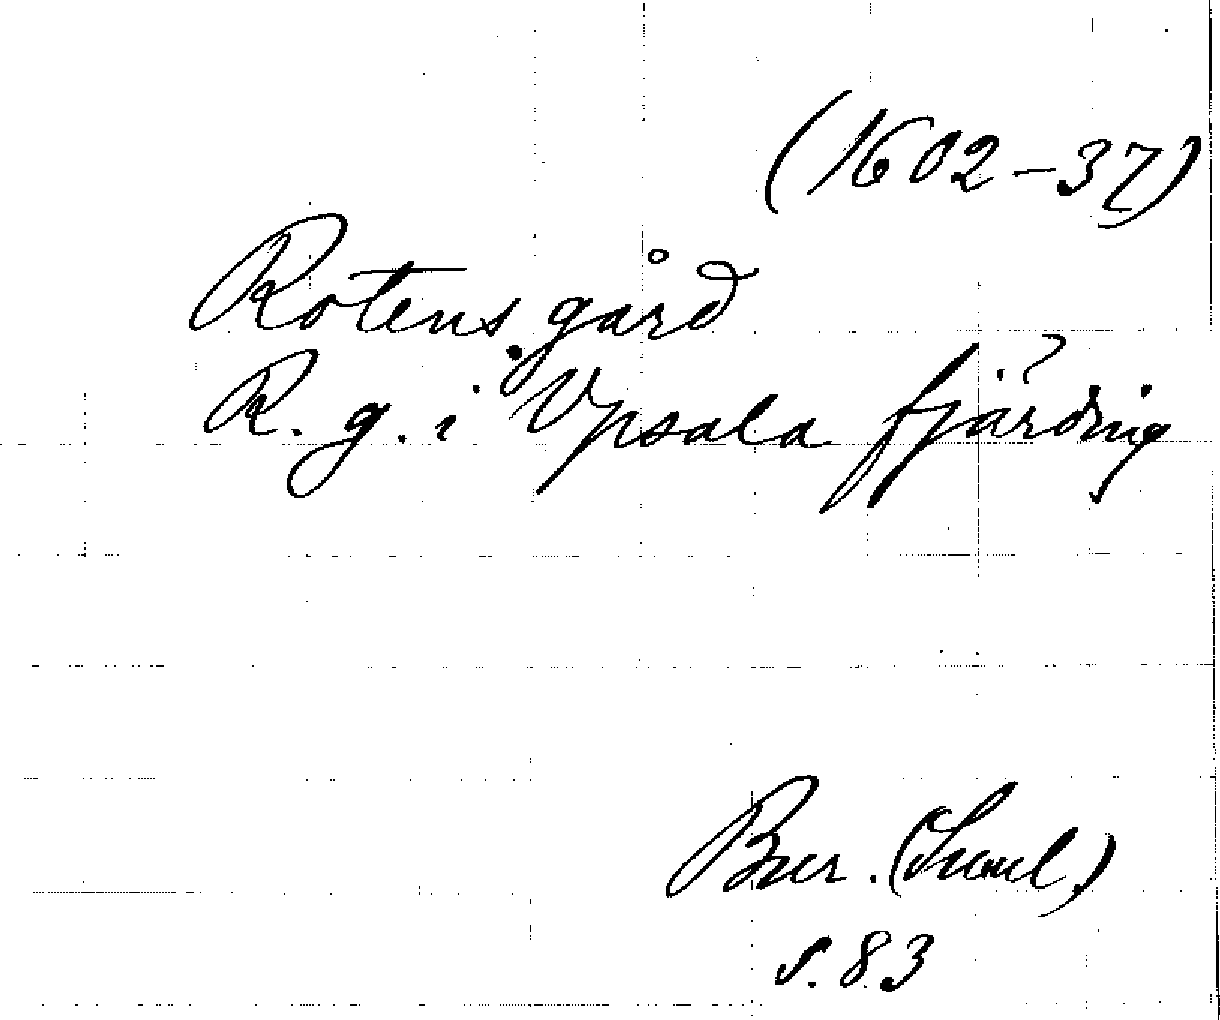 (1602-37)
Rotens gård
R. g. i Upsala fjärding
Bur. (Suml.)
s. 83